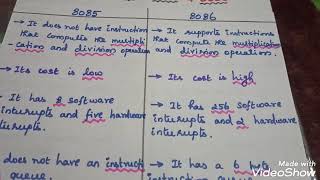 8085
8086
→ It does not have instruction
that compute the multipli-
-cation and division operation
→ It supports instructions
that compute the multiplication
and division operation.
→ Its cost is low
→ Its cost is high
→ It has 8 software
interrupts and five hardware
interrupts.
→ It has 256 software
interrupts and 2 hardware
interrupts.
does not have an instruct
queue
→ It has a 6 byte
instruction queue
Made with
VideoShow